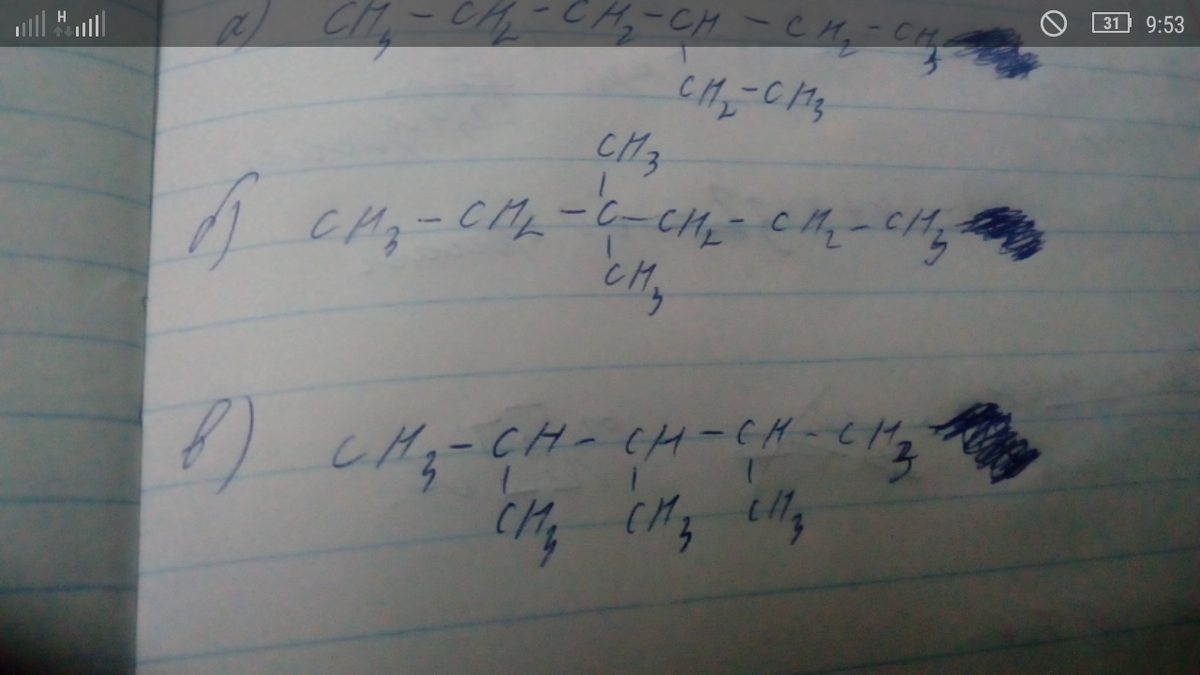 H 31 9:53
а) CH3 – CH2 – CH2 – CH – CH2 – CH3
CH2 – CH3
CH3
б) CH3 – CH2 – C – CH2 – CH2 – CH3
CH3
в) CH3 – CH – CH – CH – CH3
CH3 CH3 CH3